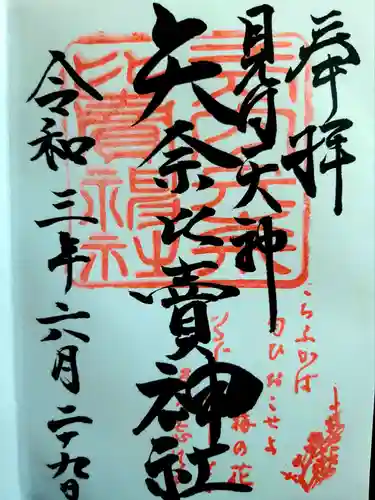 奉拝
見付天神
矢奈比賣神社
令和三年六月二十九日
こちふかば
匂ひおこせよ
梅の花